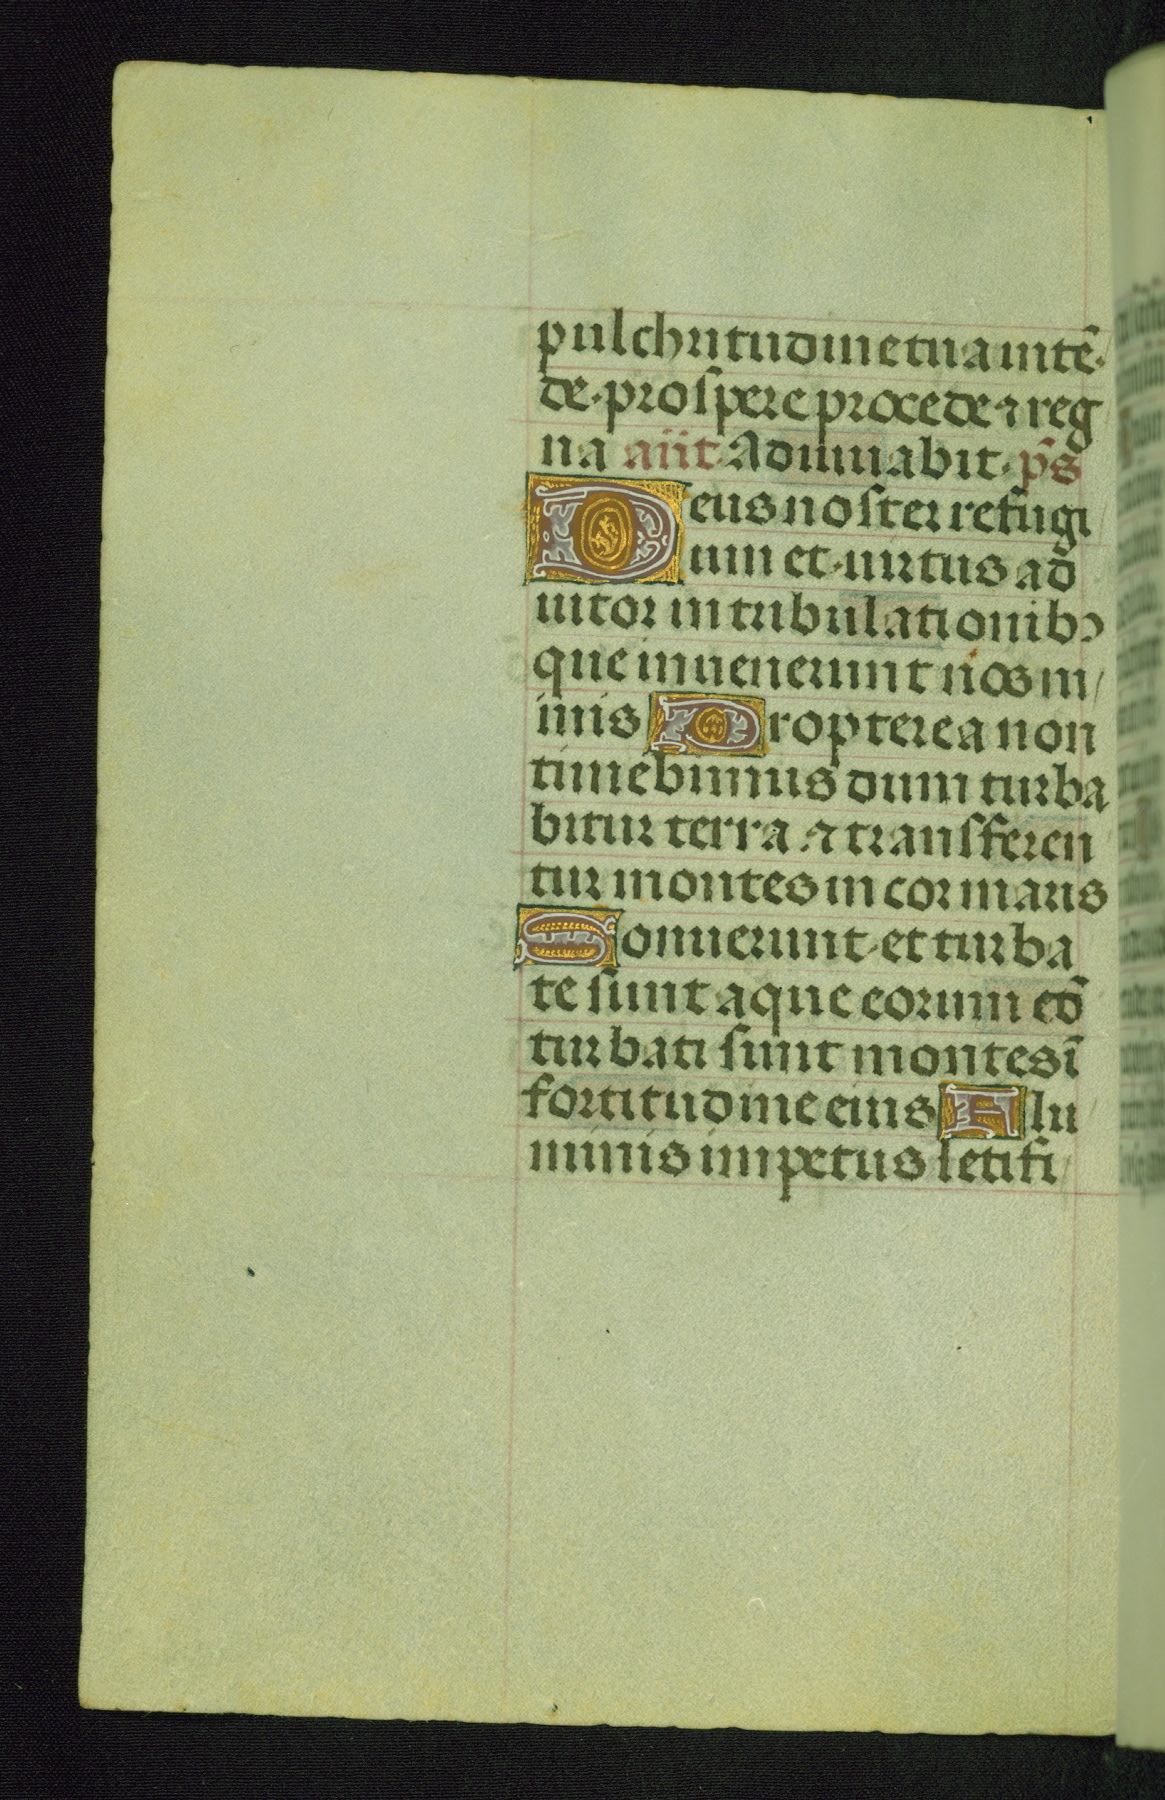 pulchritudine tua intẽ
de. prospere procede ⁊ reg
na añt. Adiuuabit. p̃s
Deus noster refugi
um et. uirtus ad
iutor in tribulationibꝰ
que inuenerunt nos ni
mis Propterea non
timebimus dum turba
bitur terra. ⁊ transferen
tur montes in cor maris
Sonuerunt et turba
te sunt aque eorum cõ
turbati sunt montes ĩ
fortitudine eius Flu
minis impetus letifi